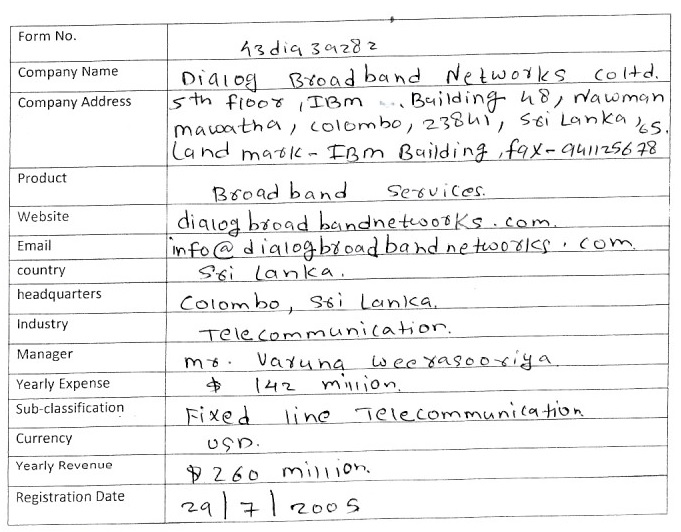 Form No. 43dia39282
Company Name Dialog Broadband Networks coltd.
Company Address 5th floor, IBm ... Building 48, Nawman
mawatha, colombo, 23841, Sri Lanka,
Land mark - IBm Building, fax - 941125678 65.
Product Broadband Services.
Website dialogbroadbandnetworks.com.
Email info@dialogbroadbandnetworks.com.
country Sri Lanka.
headquarters Colombo, Sri Lanka.
Industry Telecommunication.
Manager mr. Varuna weerasooriya
Yearly Expense $ 142 million.
Sub-classification Fixed line Telecommunication
Currency USD.
Yearly Revenue $ 260 million.
Registration Date 29/7/2005